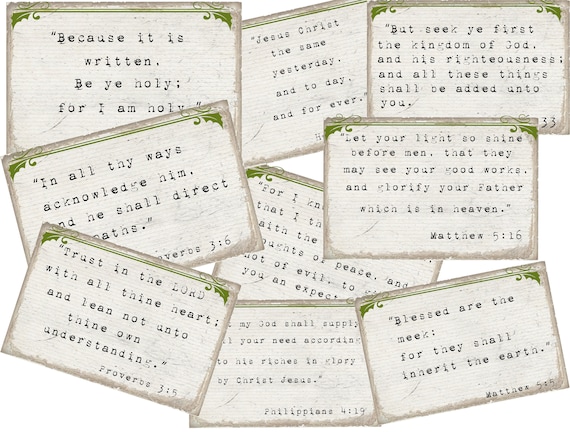 "Because it is
written,
Be ye holy;
for I am holy."
"Jesus Christ
the same
yesterday,
and to day,
and for ever."
H
"But seek ye first
the kingdom of God,
and his righteousness;
and all these things
shall be added unto
you.
33
"In all thy ways
acknowledge him,
and he shall direct
paths."
Proverbs 3:6
"Let your light so shine
before men, that they
may see your good works,
and glorify your Father
which is in heaven."
Matthew 5:16
"For I kn
that I th
faith the
thoughts of peace, and
not of evil, to
you an expec
"Trust in the LORD
with all thine heart;
and lean not unto
thine own
understanding."
Proverbs 3:5
t my God shall supply
ll your need according
to his riches in glory
by Christ Jesus."
Philippians 4:19
"Blessed are the
meek:
for they shall
inherit the earth."
Matthew 5:5